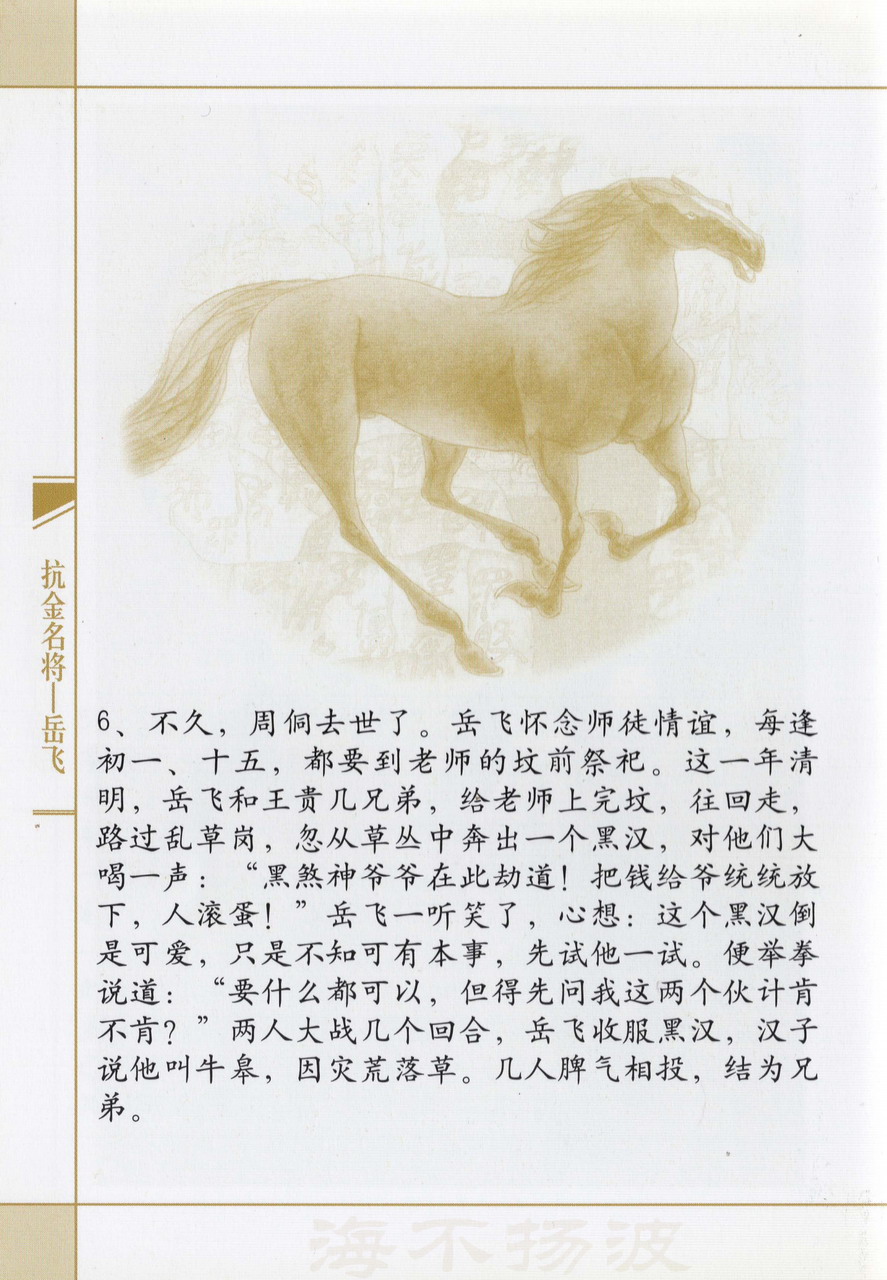 抗金名将—岳飞
6、不久，周侗去世了。岳飞怀念师徒情谊，每逢
初一、十五，都要到老师的坟前祭祀。这一年清
明，岳飞和王贵几兄弟，给老师上完坟，往回走，
路过乱草岗，忽从草丛中奔出一个黑汉，对他们大
喝一声：“黑煞神爷爷在此劫道！把钱给爷统统放
下，人滚蛋！”岳飞一听笑了，心想：这个黑汉倒
是可爱，只是不知可有本事，先试他一试。便举拳
说道：“要什么都可以，但得先问我这两个伙计肯
不肯？”两人大战几个回合，岳飞收服黑汉，汉子
说他叫牛皋，因灾荒落草。几人脾气相投，结为兄
弟。
海不扬波